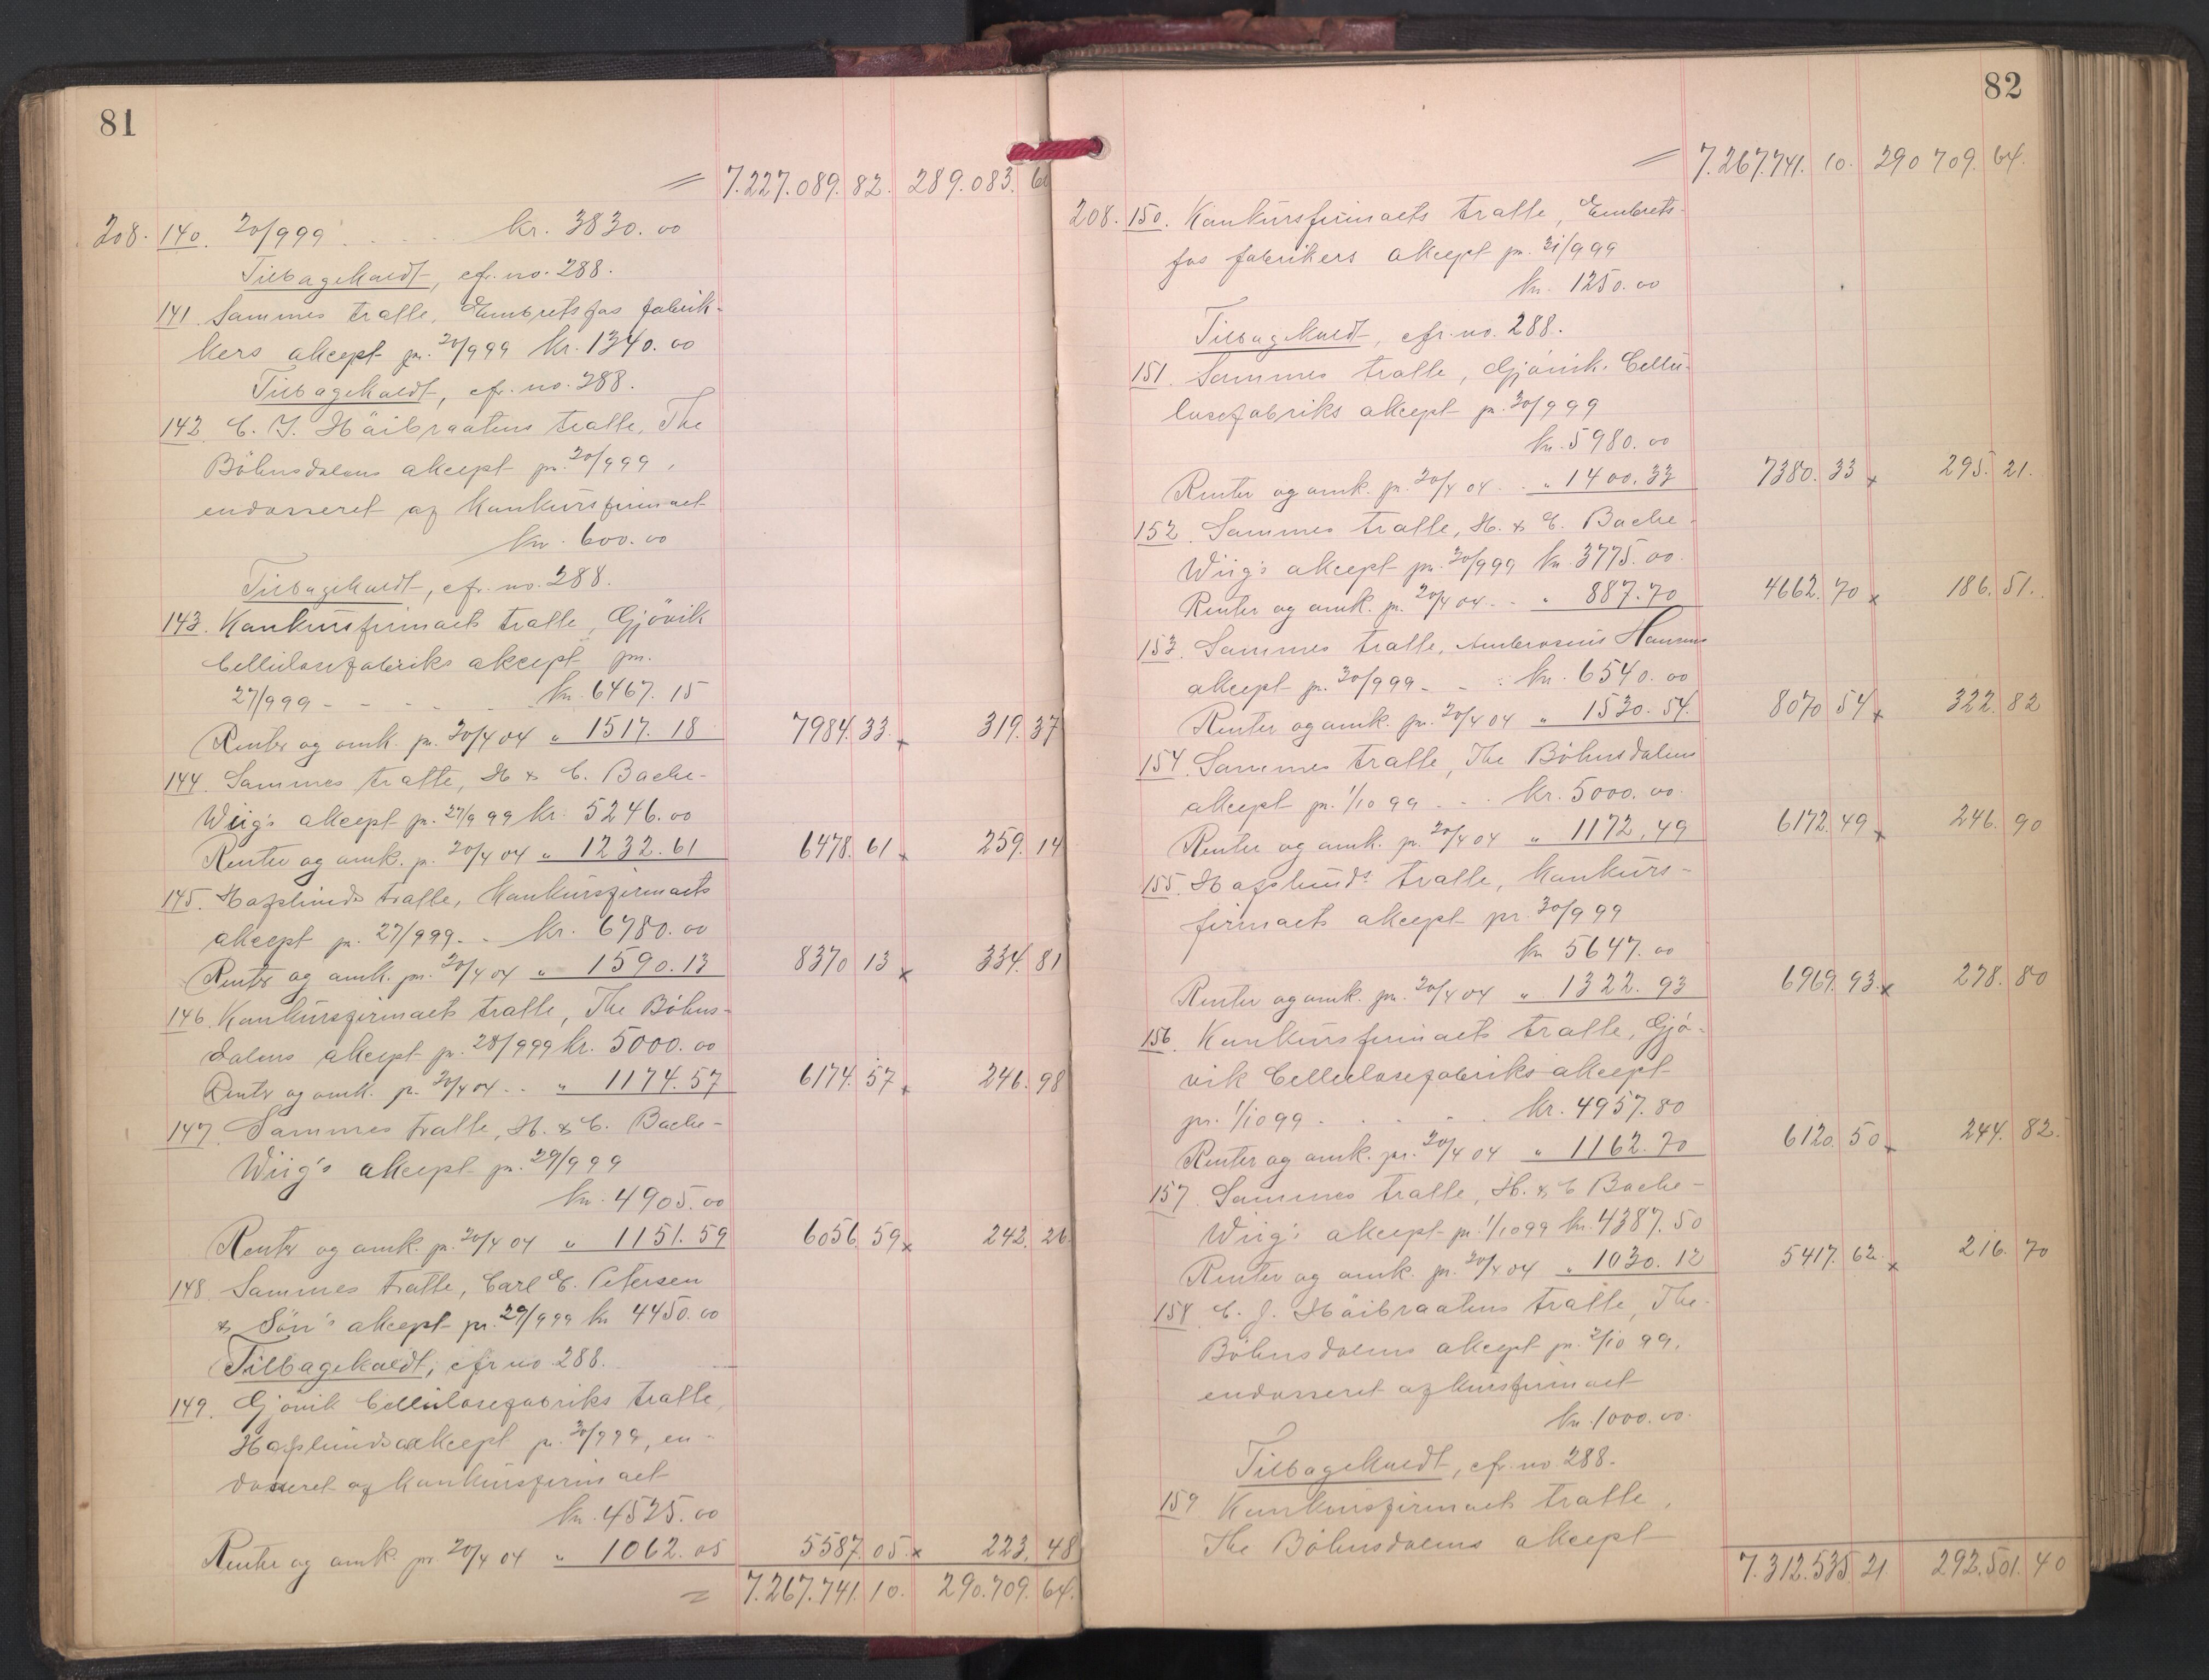 81
= 7.227.089. 82. 289.083. 60
208. 140. 20/9 99 . . . . kr. 3830.00
Tilbagekaldt, cfr. no. 288.
141. Sammes tratte, Embretsfos fabrik-
kers akcept pr. 20/9 99 kr. 1340.00
Tilbagekaldt, cfr. no. 288.
142. C. J. Häibraatens tratte, The
Böhnsdalens akcept pr. 20/9 99,
endosseret af konkursfirmaet
kr. 600.00
Tilbagekaldt, cfr. no. 288.
143. Konkursfirmaets tratte, Gjövik
Cellulosefabriks akcept pr.
27/9 99 - - - - kr. 6467.15
Renter og omk. pr. 20/4 04 " 1517.18 7984. 33. x 319. 37
144. Sammes tratte, H & C. Bache-
Wiig's akcept pr. 27/9 99 kr. 5246.00
Renter og omk. pr. 20/4 04 " 1232.61 6478. 61 x 259. 14
145. Hafslunds tratte, konkursfirmaets
akcept pr. 27/9 99 - . kr. 6780.00
Renter og omk. pr. 20/4 04 " 1590.13 8370 13 x 334. 81
146. Konkursfirmaets tratte, The Böhns-
dalens akcept pr. 28/9 99 kr. 5000.00
Renter og omk. pr. 20/4 04 . . " 1174.57 6174. 57 x 246. 98
147. Sammes tratte, H. & C. Bache-
Wiig's akcept pr. 29/9 99
kr. 4905.00
Renter og omk. pr. 20/4 04 " 1151.59 6056. 59 x 242. 26
148. Sammes tratte, Carl E. Petersen
& Sön's akcept pr. 29/9 99 kr 4450.00
Tilbagekaldt, cfr no 288.
149. Gjövik Cellulosefabriks tratte,
Hafslunds akcept pr. 30/9 99, en-
dosseret af konkursfirmaet
kr. 4525.00
Renter og omk. pr. 20/4 04 " 1062.05 5587. 05. x 223. 48
= 7.267.741. 10. 290.709. 64.
82
= 7.267.741. 10. 290 709. 64.
208. 150. Konkursfirmaets tratte, Embrets-
fos fabrikers akcept pr. 31/9 99
kr. 1250.00
Tilbagekaldt, cfr. no. 288.
151. Sammes tratte, Gjövik Cellu-
losefabriks akcept pr. 30/9 99
kr. 5980.00
Renter og omk. pr. 20/4 04 . . " 1400.33 7380. 33 x 295. 21.
152. Sammes tratte, H. & C. Bache-
Wiig's akcept pr. 30/9 99 kr. 3775.00.
Renter og omk. pr. 20/4 04 - - " 887.70 4662. 70 x 186. 51.
153. Sammes tratte, Ambrosius Hansens
akcept pr. 30/9 99 - - . kr. 6540.00
Renter og omk. pr. 20/4 04 " 1530.54. 8070 54 x 322. 82
154. Sammes tratte, The Böhnsdalens
akcept pr. 1/10 99 - - . kr. 5000.00.
Renter og omk. pr. 20/4 04 " 1172.49 6172. 49 x 246. 90
155. Hafslunds tratte, konkurs-
firmaets akcept pr. 30/9 99
kr 5647.00
Renter og omk. pr. 20/4 04 " 1322.93 6969. 93. x 278. 80
156. Konkursfirmaets tratte, Gjö-
vik Cellulosefabriks akcept
pr. 1/10 99 . . . . . kr. 4957.80
Renter og omk. pr. 20/4 04 " 1162.70 6120. 50 x 244. 82.
157. Sammes tratte, H. & C Bache-
Wiig's akcept pr. 1/10 99 kr. 4387.50
Renter og omk. pr. 20/4 04 " 1030.12 5417. 62 x 216. 70
158. C. J. Häibraatens tratte, The
Böhnsdalens akcept pr. 2/10 99,
endosseret af kursfirmaet
kr. 1000.00.
Tilbagekaldt, cfr. no 288.
159 Konkursfirmaets tratte,
The Böhnsdalens akcept
7.312.535. 21 292.501. 40